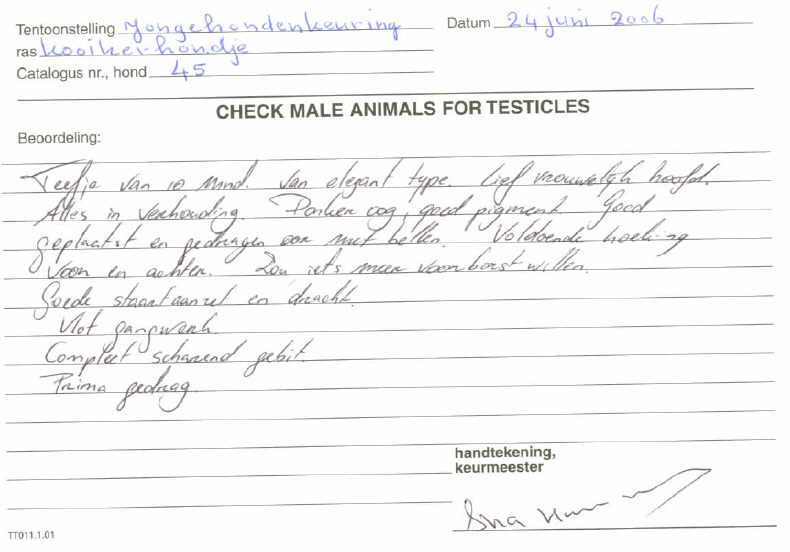 Tentoonstelling Jongehondenkeuring Datum 24 juni 2006
ras Kooikerhondje
Catalogus nr., hond 45
CHECK MALE ANIMALS FOR TESTICLES
Beoordeling:
Teefje van 10 mnd. van elegant type. Lief vrouwelijk hoofd.
Alles in verhouding. Donker oog, goed pigment. Goed
geplaatst en gedragen oor met bellen. Voldoende hoeking
voor en achter. Zou iets meer voorborst willen.
Goede staartaanzet en dracht.
Vlot gangwerk.
Compleet scharend gebit.
Prima gedrag.
handtekening,
keurmeester
TT011.1.01